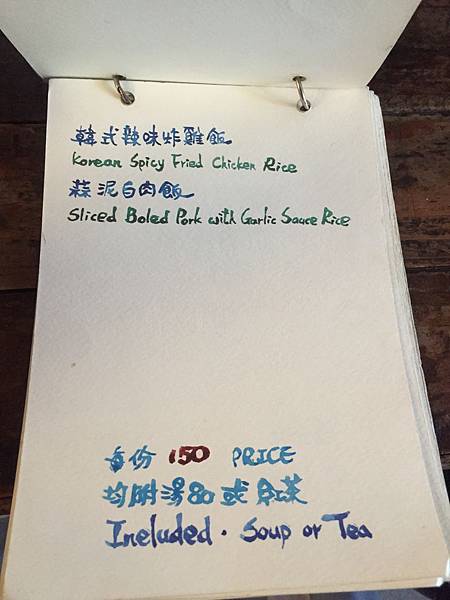 韓式辣味炸雞飯
Korean Spicy Fried Chicken Rice
蒜泥白肉飯
Sliced Boled Pork with Garlic Sauce Rice
每份 150 PRICE
均附湯80或紅茶
Included. Soup or Tea